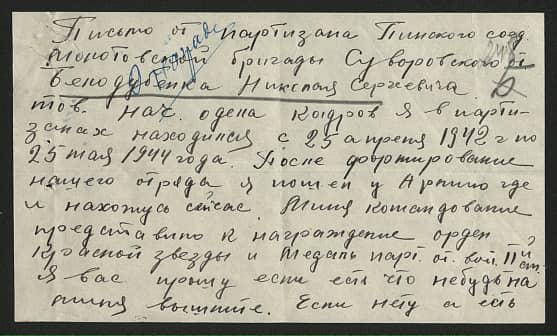 Письмо от партизана Пинского соед.
Молотовской бригады Суворовского от
Белодубенка Николая Сергкевича
тов. нач. одела Кадров я в парти-
занах находился с 25 апреля 1942 г по
25 мая 1944 года. После формирование
нашего отряда я пошел у Армию где
и нахожусь сейчас. Миня командование
представило к награждение орден
Красной звезды и Медаль парт. от. вой. II й ст.
Я вас прошу если есть что небудь на
миня вышлите. Если нету а есть